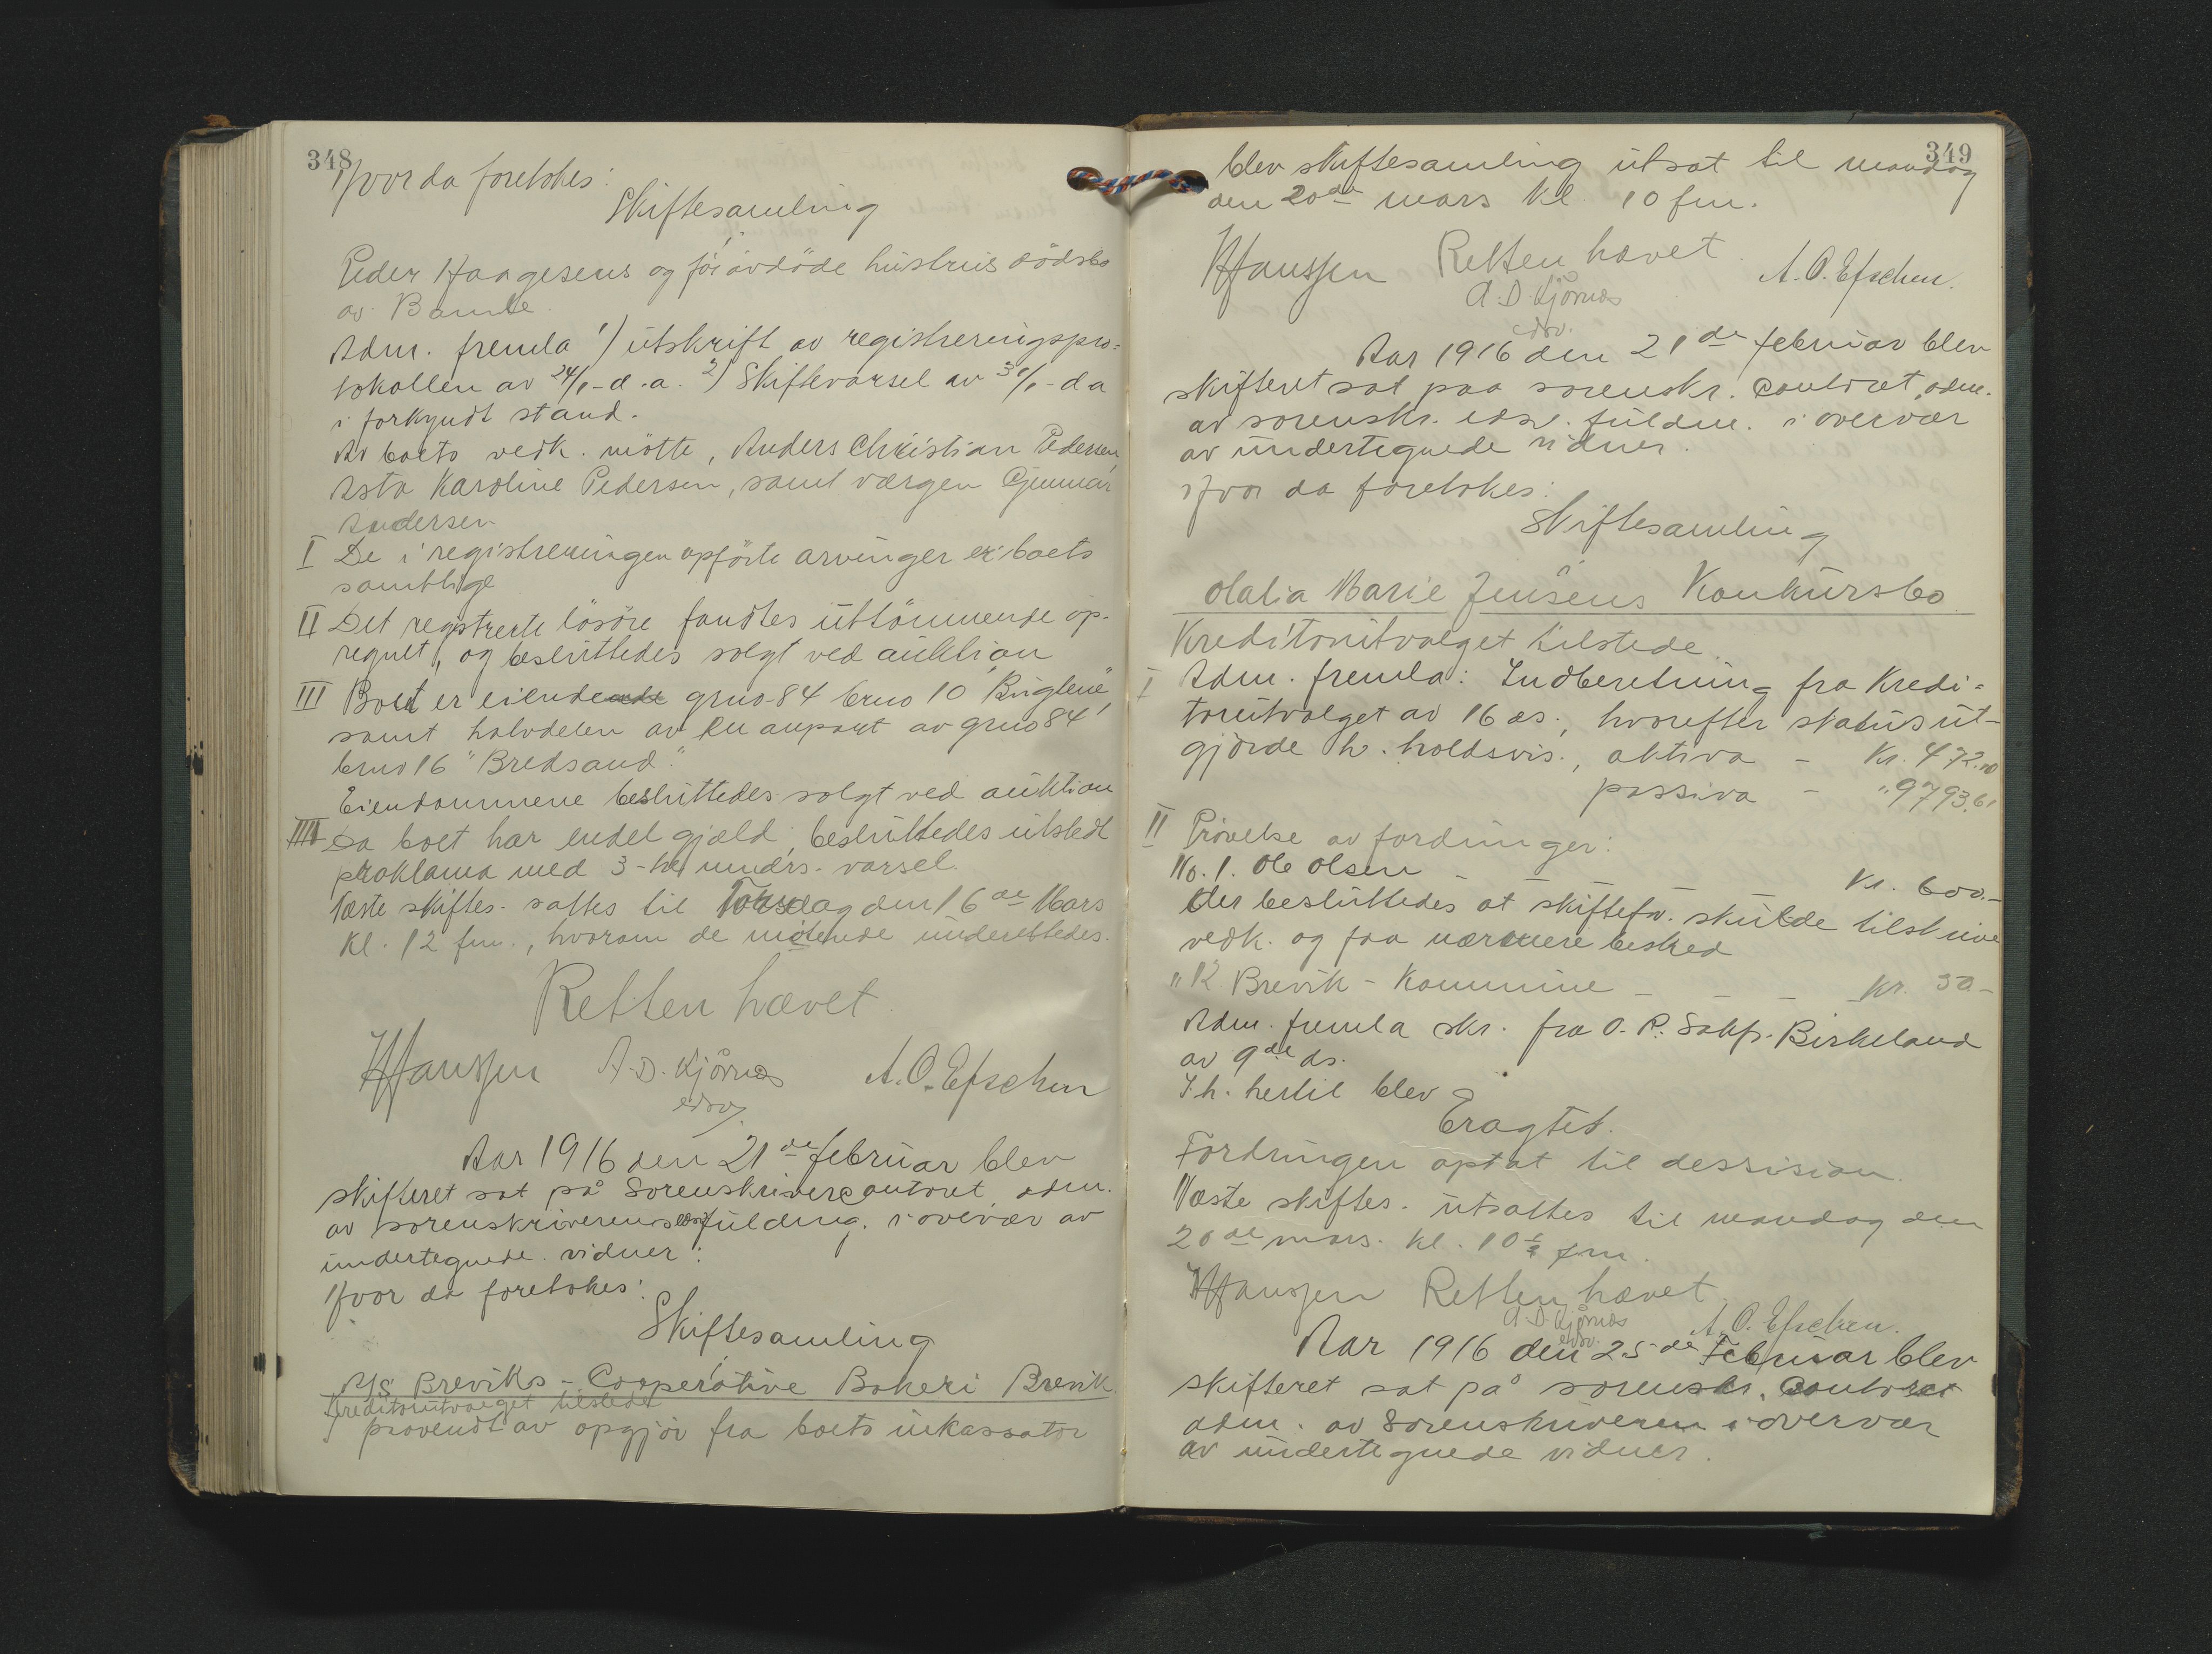 348
Hvor da foretokes:
Skiftesamling
i
Peder Haagesens og før avdöde hustrus dödsbo
av Bamle.
Adm. fremla 1) utskrift av registreringspro-
tokollen av 24/1 - d.a. 2) Skiftevarsel av 31/1 - d a
i forkyndt stand.
Av boets vedk. mötte, Anders Christian Pedersen,
Asta Karoline Pedersen, samt værgen Gunnar
Andersen
I De i registreringen opförte arvinger er boets
samtlige
II Det registrerte lösöre fandtes uttömmende op-
regnet, og besluttedes solgt ved auktion
III Boet er eiende grno 84 brno 10
samt halvdelen av en anpart av grno 84
brno 16 "Bredsand".
Eiendommene besluttedes solgt ved auktion
IIII Da boet har endel gjæld, besluttedes utstedt
proklama med 3- mndrs. varsel.
Næste skiftes. sattes til Torsdag den 16de Mars
kl. 12 fm., hvorom de mötende underettedes.
Retten hævet.
HHanssen A. D. Kjörnæs A. O. Efschen
edsv.
Aar 1916 den 21de februar blev
skifteret sat på Sorenskriverecontoret adm.
av sorenskriverens edsv fuldmg. i overvær av
undertegnede vidner:
Hvor da foretokes:
Skiftesamling
i
A/S Breviks - Cooperative Bakeri Brevik.
Kreditorutvalget tilstede
I pavendt av opgjör fra boets inkassator
349
blev skiftesamling utsat til mandag
den 20de mars kl. 10 fm.
HHanssen Retten hævet. A. O. Efschen.
A. D. Kjörnæs
edsv.
Aar 1916 den 21de februar blev
skifteret sat paa sorenskr. contoret, adm.
av sorenskr. edsv. fuldm. i overvær
av undertegnede vidner.
Hvor da foretokes:
Skiftesamling
i
Olalia Marie Jensens Konkursbo
Kreditorutvalget tilstede.
I Adm. fremla: Indberetning fra Kredi-
torutvalget av 16 ds., hvorefter status ut-
gjorde h. holdsvis., aktiva - Kr. 472.
passiva - " 9793.61
II Prövelse av fordringer:
No. 1. Ole Olsen - - - Kr. 600.-
Der besluttedes at skiftefv. skulde tilskrive
vedk. og faa nærmere besked
" 12 Brevik - Kommune - - - Kr. 50 -
Adm. fremla skr. fra O. R. Sakf. Birkeland
av 9de ds.
I h. hertil blev
Eragtet.
Fordringen optat til dessision.
Næste skiftes. utsattes til mandag den
20de mars. kl. 10 1/2 fm.
HHanssen Retten hævet.
A. D. Kjörnæs A. O. Efschen.
edsv.
Aar 1916 den 25de Februar blev
skifteret sat på sorenskr. Contoret
adm. av Sorenskriveren i overvær
av undertegnede vidner.